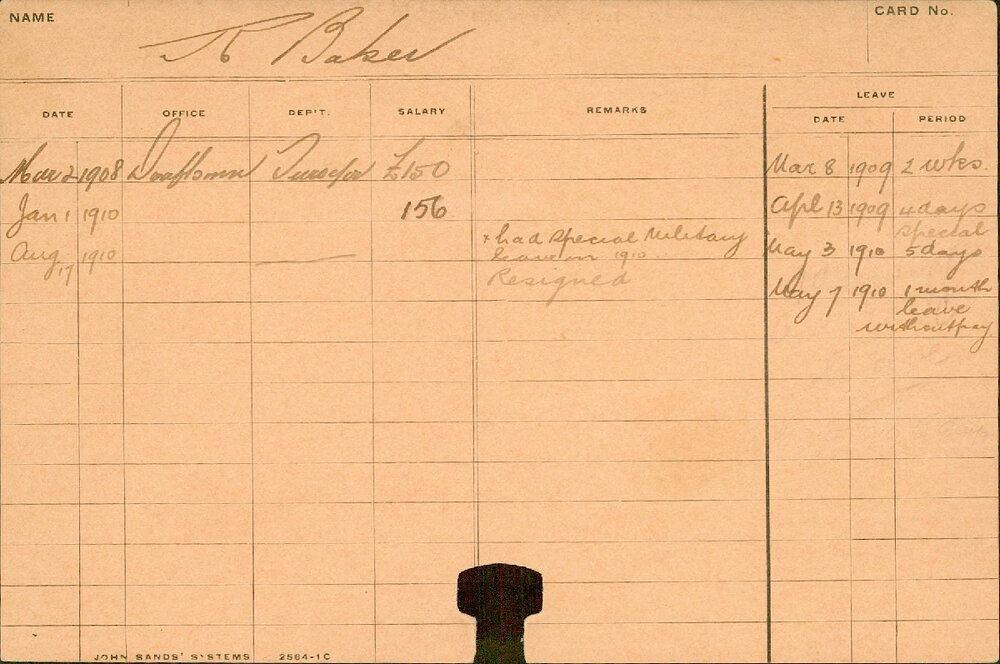 NAME
CARD No.
R Baker
LEAVE
DATE OFFICE DEP'T. SALARY REMARKS DATE PERIOD
Mar 2 1908 Draftsman £150 Mar 8 1909 2 wks.
Jan 1 1910 156 Apl 13 1909 4 days
special
Aug 17 1910 x had special Military May 3 1910 5 days
leave in 1910
Resigned May 7 1910 1 month
leave
without pay
JOHN SANDS' SYSTEMS 2564-1C